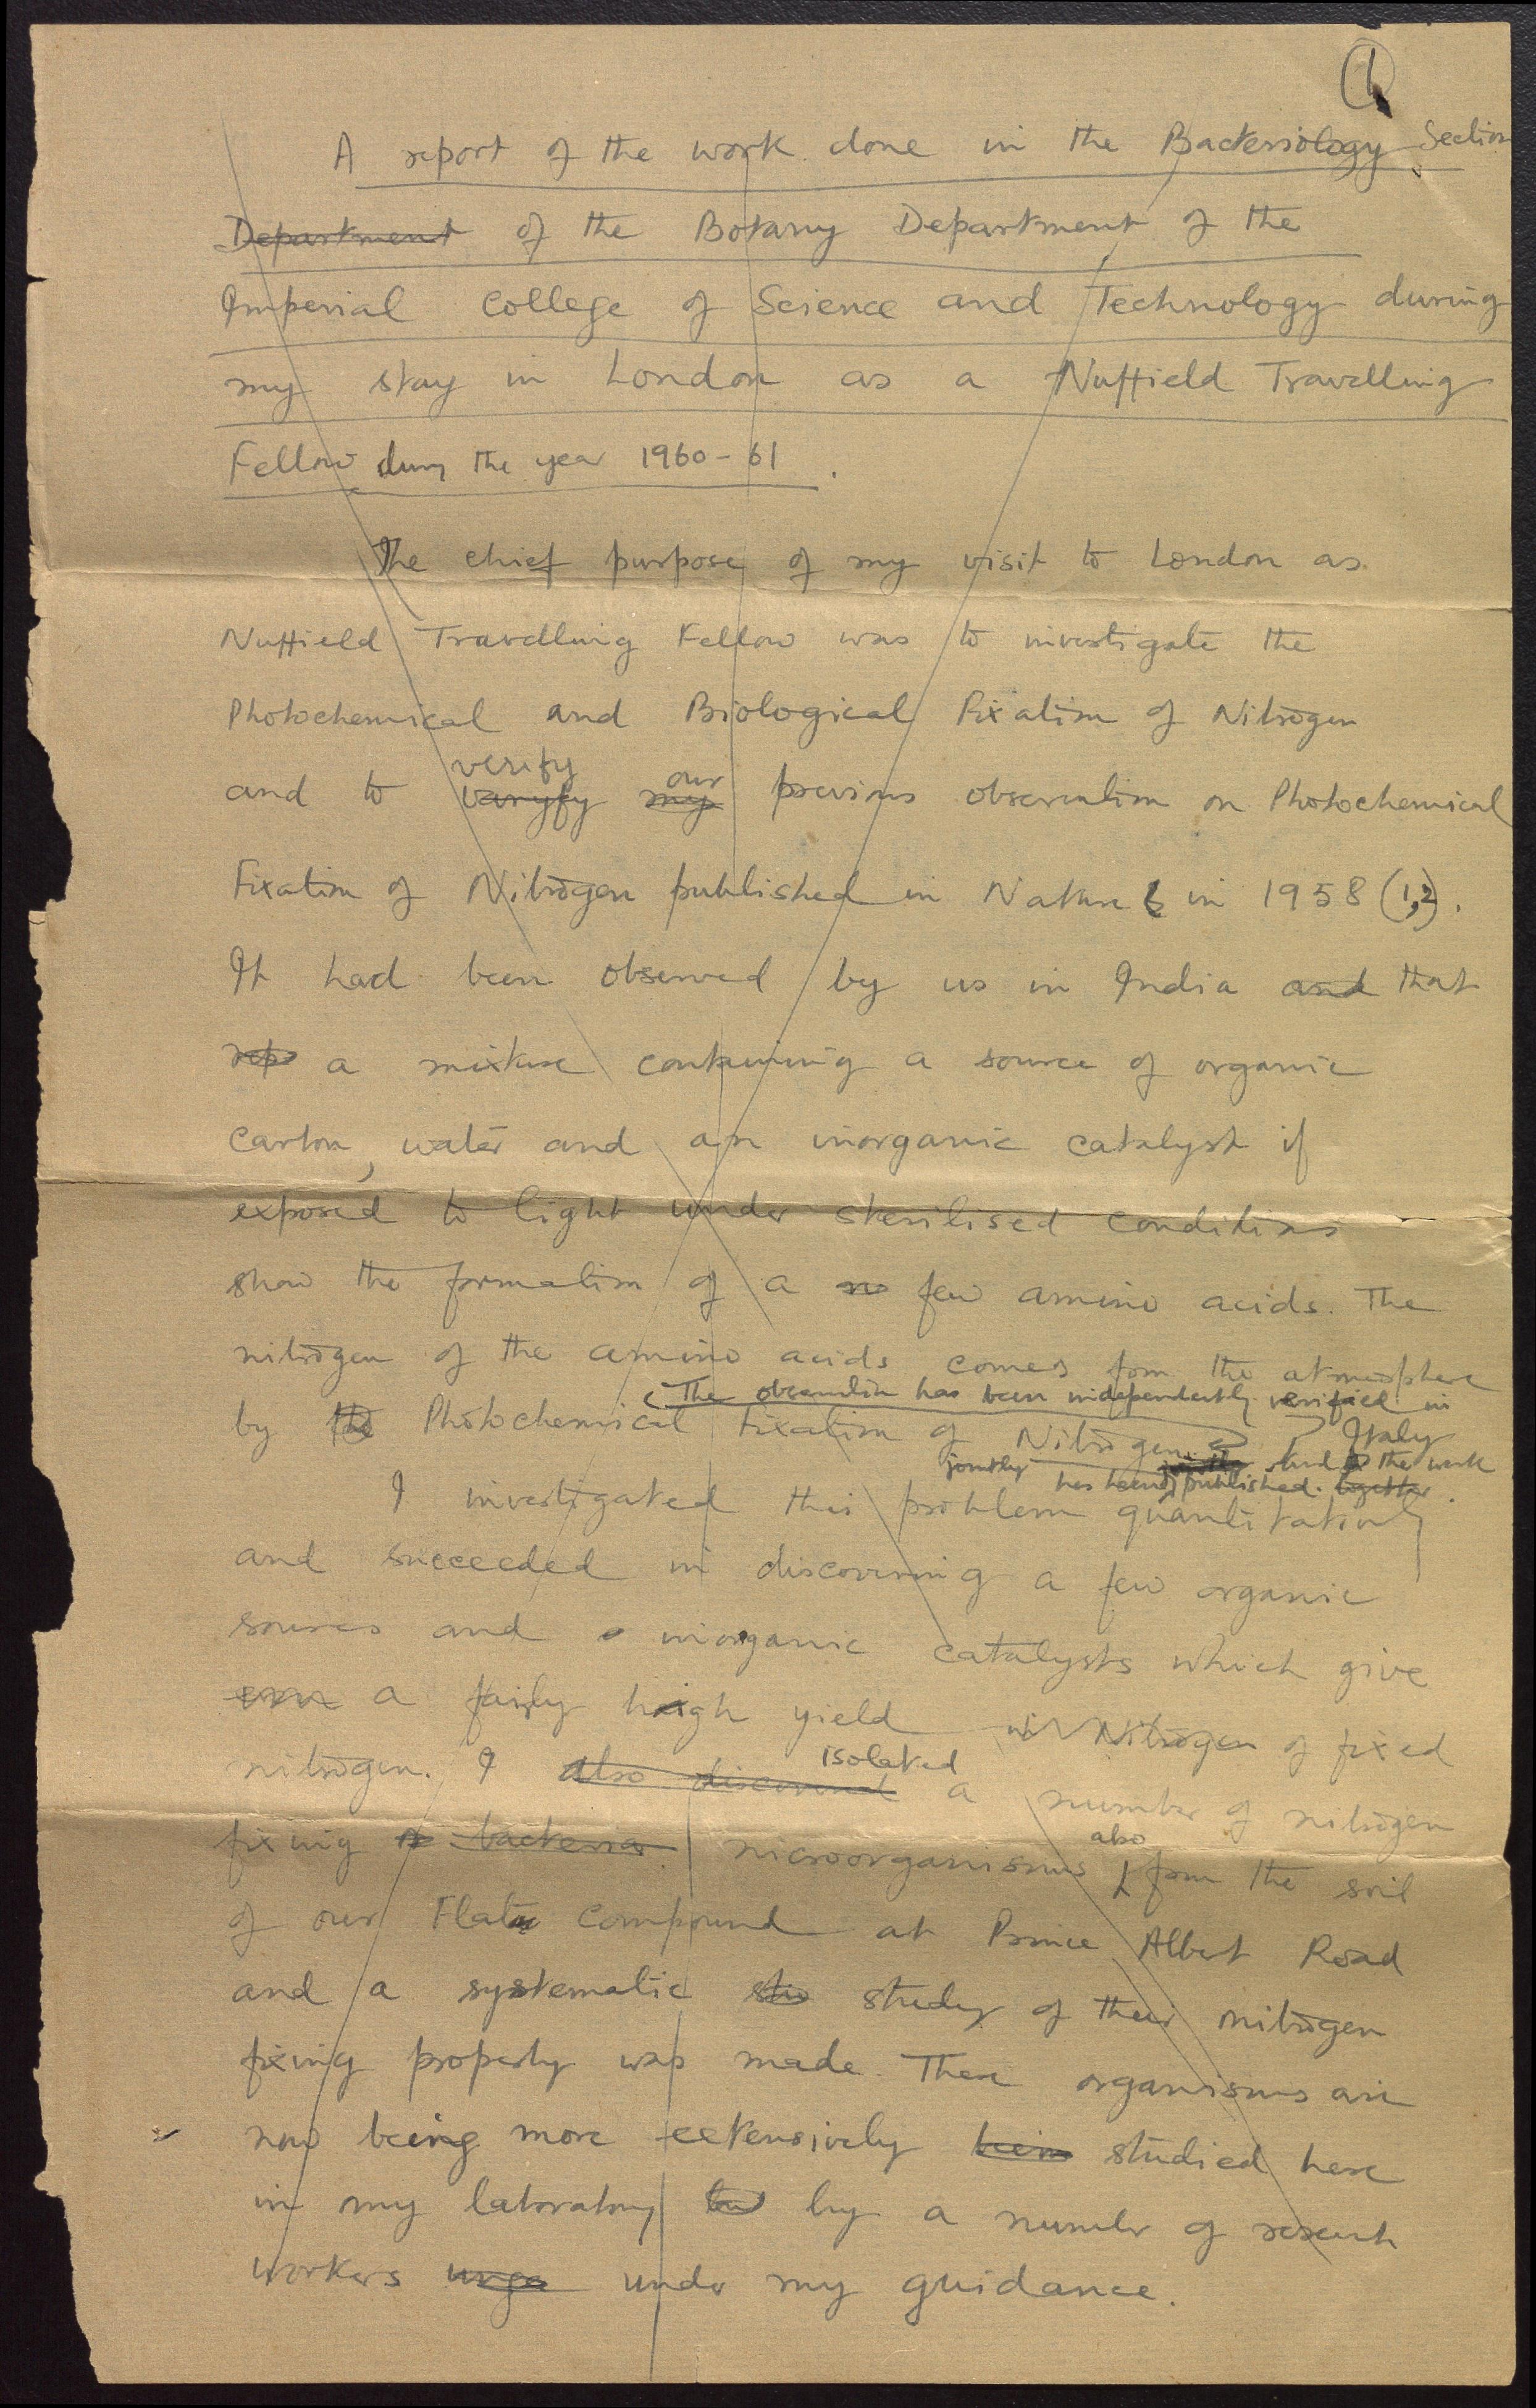 1
A report of the work done in the Bacteriology Section
Department of the Botany Department of the
Imperial College of Science and Technology during
my stay in London as a Nuffield Travelling
Fellow during the year 1960-61.
The chief purpose of my visit to London as
Nuffield Travelling Fellow was to investigate the
Photochemical and Biological Fixation of Nitrogen
verify our
and to varyfy my previous observation on Photochemical
Fixation of Nitrogen published in Nature in 1958 (1,2).
It had been observed by us in India and that
rep a mixture containing a source of organic
carbon, water and an inorganic catalyst if
exposed to light under sterilised conditions
show the formation of a no few amino acids. The
nitrogen of the amino acids comes from the atmosphere
(The observation has been independently verified in
by the Photochemical Fixation of Nitrogen. Italy
jointly and the work
has been published. together.
I investigated this problem quantitatively
and succeeded in discovering a few organic
sources and inorganic catalysts which give
a fairly high yield Nitrogen of fixed
isolated
nitrogen. I also discovered a number of nitrogen
also
fixing bacteria microorganisms from the soil
of our Flats compound at Prince Albert Road
and a systematic study of their nitrogen
fixing property was made. These organisms are
now being more extensively being studied here
in my laboratory by a number of research
workers under my guidance.